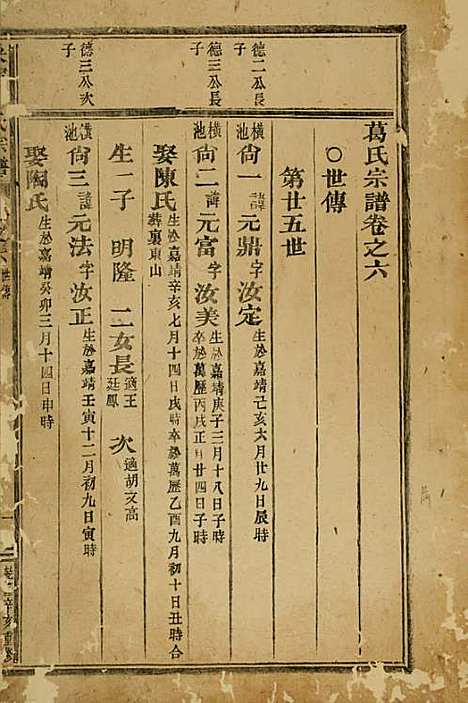 葛氏宗譜卷之六
○世傳
第廿五世
德二公長子
橫池
尙一 諱元鼎字汝定 生於嘉靖己亥六月廿九日辰時
德三公長子
橫池
尙二 諱元富字汝美 生於嘉靖庚子三月十八日子時 卒於萬歷丙戌正月廿四日子時
娶陳氏 生於嘉靖辛亥七月十四日戌時卒於萬歷乙酉九月初十日丑時合葬裏東山
生一子 明隆 二女長 適王廷鳳 次 適胡文高
德三公次子
橫池
尙三 諱元法字汝正 生於嘉靖壬寅十二月初九日寅時
娶陶氏 生於嘉靖癸卯三月十四日申時
氏宗譜
世傳
一
辛亥重修